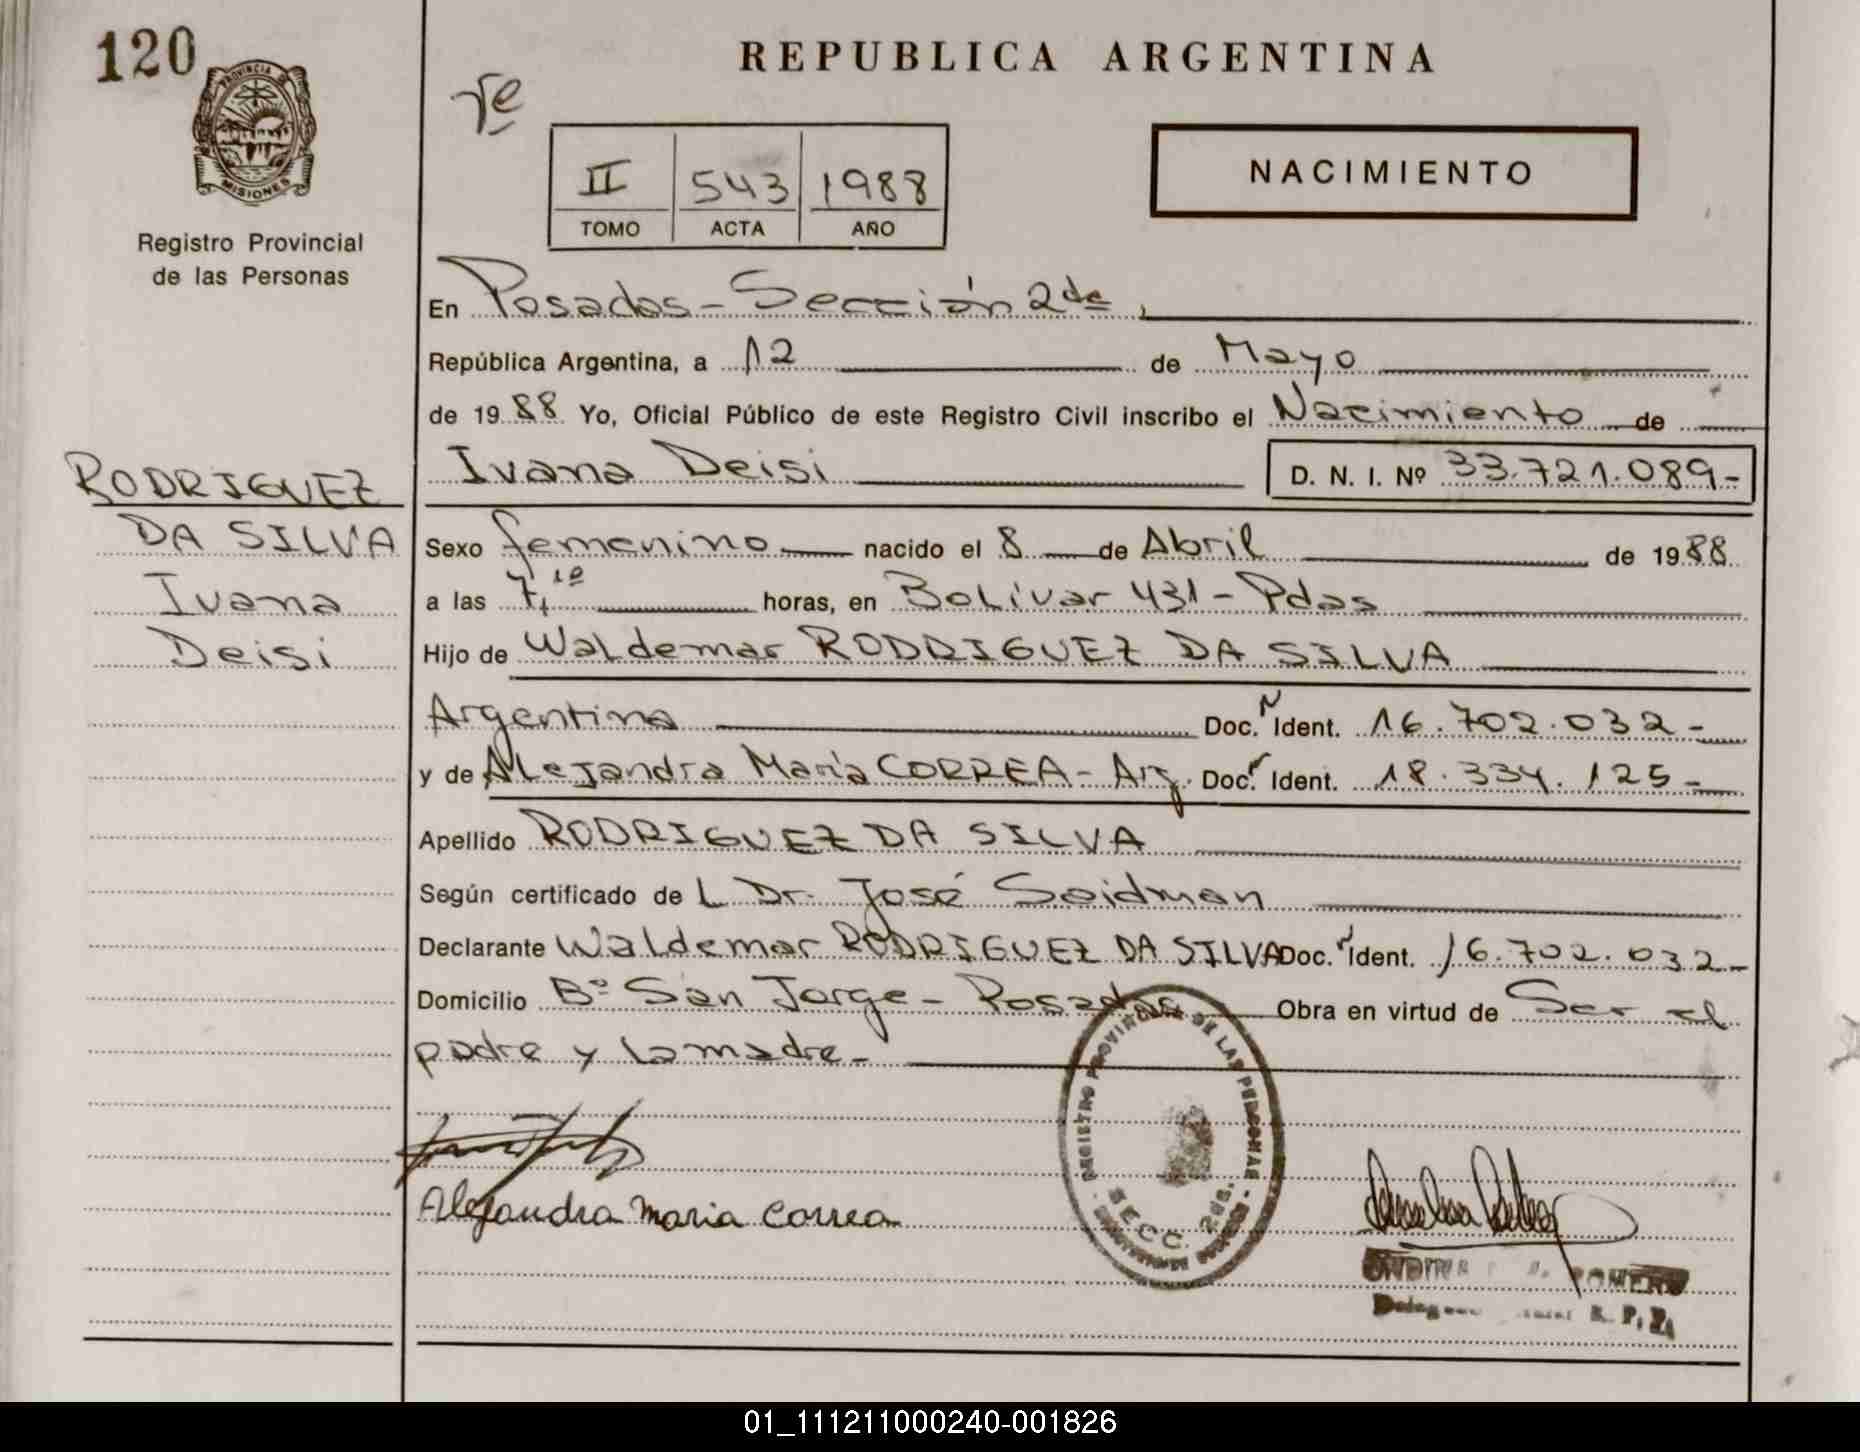 120
REPUBLICA ARGENTINA
PROVINCIA DE
MISIONES
Registro Provincial
de las Personas
II 543 1988
TOMO ACTA AÑO
NACIMIENTO
En Posadas - Sección 2da,
República Argentina, a 12 de Mayo
de 1988 Yo, Oficial Público de este Registro Civil inscribo el Nacimiento de
Ivana Deisi D. N. I. Nº 33.721.089-
RODRIGUEZ
DA SILVA
Ivana
Deisi
Sexo femenino nacido el 8 de Abril de 1988
a las 7,10 horas, en Bolívar 431 - Pdas
Hijo de Waldemar RODRIGUEZ DA SILVA
Argentina Doc. N Ident. 16.702.032-
y de Alejandra María CORREA - Arg. Doc. Ident. 18.334.125-
Apellido RODRIGUEZ DA SILVA
Según certificado de L Dr. José Seidman
Declarante Waldemar RODRIGUEZ DA SILVA Doc. Ident. 16.702.032-
Domicilio Bº San Jorge - Posadas Obra en virtud de Ser el
padre y la madre-
REGISTRO PROVINCIAL DE LAS PERSONAS
SECC. 2da.
Alejandra Maria Correa
ROMERO
R. P. P.
01_111211000240-001826